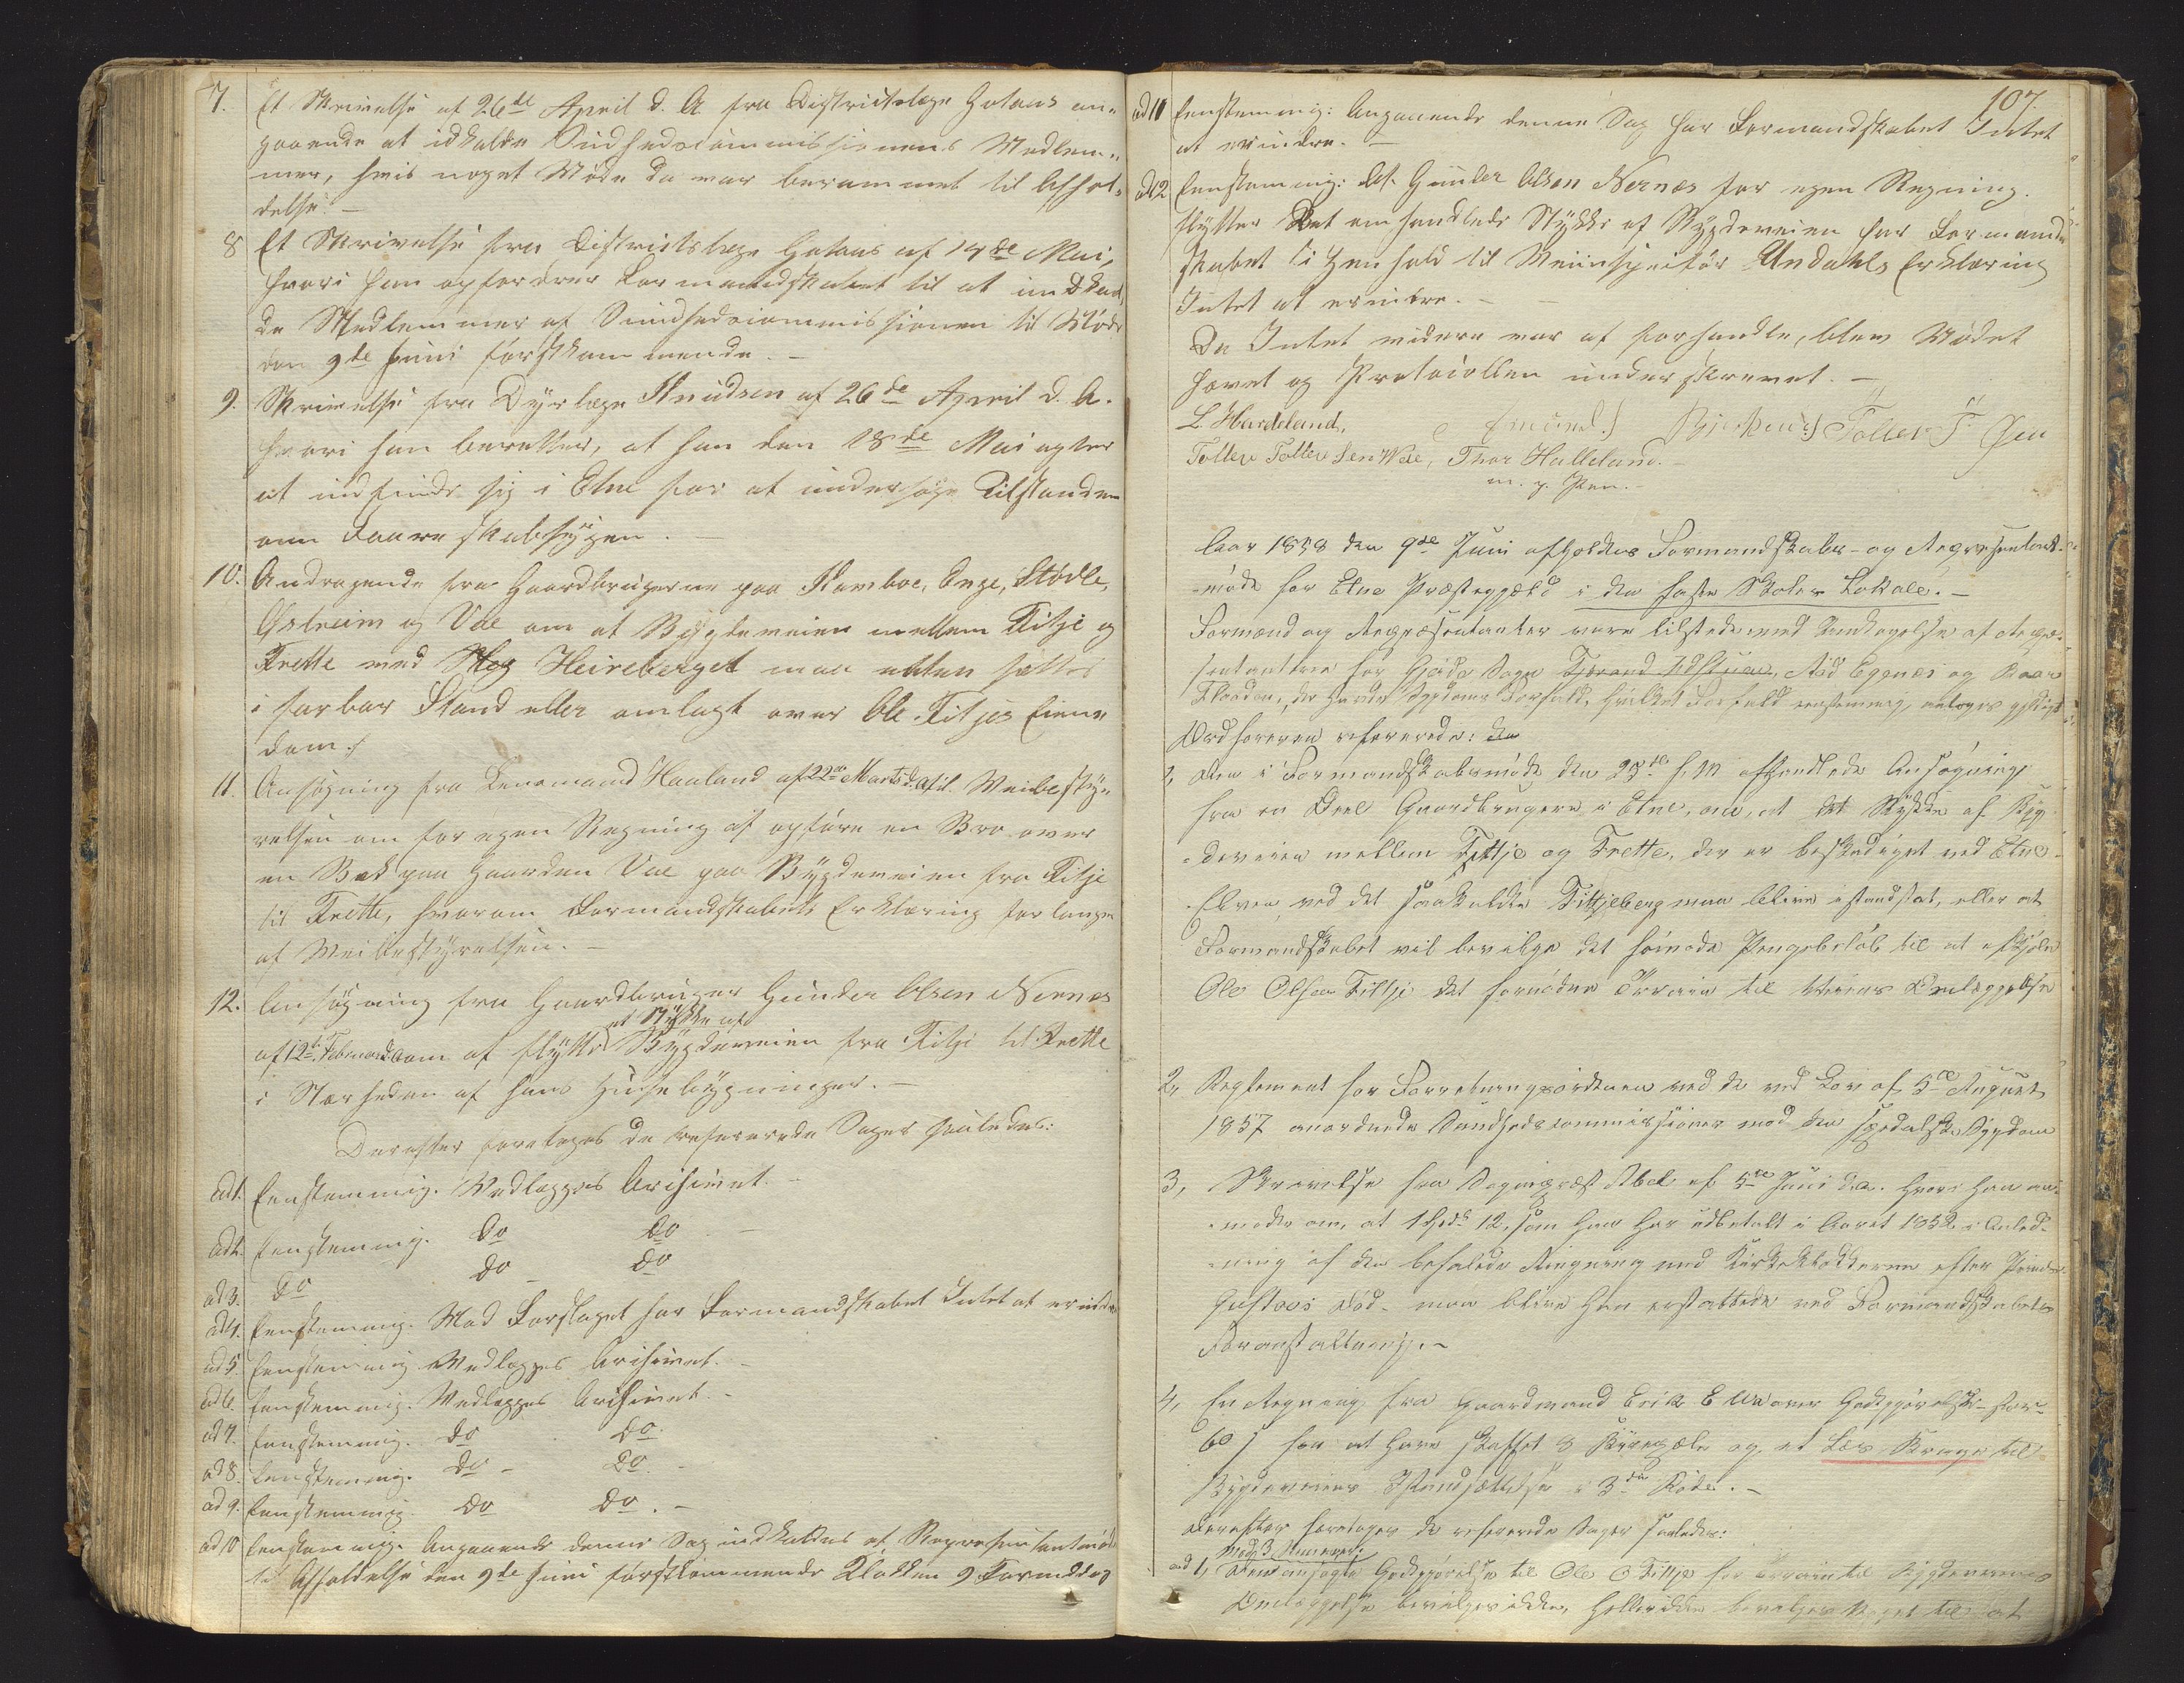 7. Et Skrivelse af 26de April d. A. fra Districtslæge Hotans an-
gaaende at idkalde Sundhedscommissionens Medlem-
mer, hvis noget Møde da var berammet til Afhol-
delse. -
8 Et Skrivelse fra Districtslæge Hotans af 14de Mai,
hvori han opfordrer Formandskabet til at indkal-
de Medlemmer af Sundhedscommissionen til Møde
den 9de Juni førstkommende. -
9. Skrivelse fra Dyrlæge Knudsen af 26de April d. A.
hvori han beretter, at han den 18de Mai agter
at indfinde sig i Etne for at undersøge Tilstanden
om Faareskabsygen. -
10. Andragende fra Gaardbrugerne paa Stamboe, Enge, Stødle,
Østreim og Vae om at Bygdeveien mellem Fitje og
Frette ved Heireberget maa enten sættes
i farbar Stand eller omlagt over Ole Fitjes Eien-
dom.
11. Ansøgning fra Lensmand Haaland af 22de Marts d. A. til Veibesty-
relsen om for egen Regning at opføre en Bro over
en Bæk paa Gaarden Vae paa Bygdeveien fra Fitje
til Frette, hvorom Formandskabets Erklæring forlanges
af Veibestyrelsen. -
12. Ansøgning fra Gaardbruger Gunder Olsen Nernæs
et Stykke af
af 12te Februar d. A. om at flytte Bygdeveien fra Fitje til Frette
i Nærheden af hans Husebygninger. -
Derefter foretoges de refererede Sager saaledes:
ad 1. Eenstemmig. Vedlægges Archivet. -
ad 2. Eenstemmig. Do Do -
ad 3. Do Do - Do
ad 4. Eenstemmig. Mod Forslaget har Formandskabet Intet at erindre
ad 5 Eenstemmig Vedlægges Archivet. -
ad 6. Eenstemmig. Vedlægges Archivet. -
ad 7. Eenstemmig. Do Do.
ad 8. Eenstemmig. Do - Do -
ad 9. Eenstemmig Do Do. -
ad 10 Eenstemmig. Angaaende denne Sag indkaldes et Repræsentantmøde
til Afholdelse den 9de Juni førstkommende Klokken 9 Formiddag
107.
ad 11 Eenstemmig: Angaaende denne Sag har Formandskabet Intet
at erindre. -
ad 12 Eenstemmig: At Gunder Olsen Nernæs for egen Regning
flytter Det omhandlede Stykke af Bygdeveien har Formand-
skabet i Henhold til Veiinspektør Undahls Erklæring
Intet at erindre. -
Da Intet videre var at forhandle, blev Mødet
hævet og Protocollen underskrevet. -
L. Hardeland, Tollev
Tollev Tollevsen Vae, Thor Halleland.
m. p. Pen. -
Aar 1858 den 9de Juni afholdtes Formandskabs- og Repræsentant-
møde for Etne Præstegjæld i den faste Skoles Lokale. -
Formænd og Repræsentanter vare tilstede med Undtagelse af Repræ-
sentanterne for Gjærde Sogn Tjerand Udstuen, Aad Eggenæs og Baar
Flaaden, der havde Sygdoms Forfald, hvilket Forfald eenstemmig antoges gyldigt
Ordføreren refererede:
1, Den i Formandskabsmøde den 25de f. M. afhandlede Ansøgning
fra en Deel Gaardbrugere i Etne, om, at det Stykke af Byg-
deveien mellem Fittje og Frette, der er beskadiget ved Etne-
Elven, ved det saakaldte Fittjeberg maa blive istandsat, eller at
Formandskabet vil bevilge det fornødne Pengebeløb til at afkjøbe
Ole Olsen Fittje det fornødne Terrain til Veiens Omlæggelse
2, Reglement for Forretningsordenen ved de ved Lov af 5te August
1857 anordnede Sundhedscommissioner mod den spedalske Sygdom
3, Skrivelse fra Sognepræst Abel af 5te Juni d. A. hvori han an-
moder om, at 1 Spd. 12, som han har udbetalt i Aaret 1852 i Anled-
ning af den befalede Ringning med Kirkeklokkerne efter Prinds
Gustavs Død - maa blive ham erstattede ved Formandskabets
Foranstaltning. -
4, En Regning fra Gaardmand Erik Ellu over Godtgjørelse -
60 s for at have skaffet 3 og et Læs Krage til
Bygdeveiens Istandsættelse i 3die Rode. -
Derefter foretoges de refererede Sager saaledes:
ad 1, Den ansøgte Godtgjørelse til Ole O Fittje for Terrain til Bygdeveiens
Omlæggelse bevilges ikke, heller ikke bevilges Noget til at